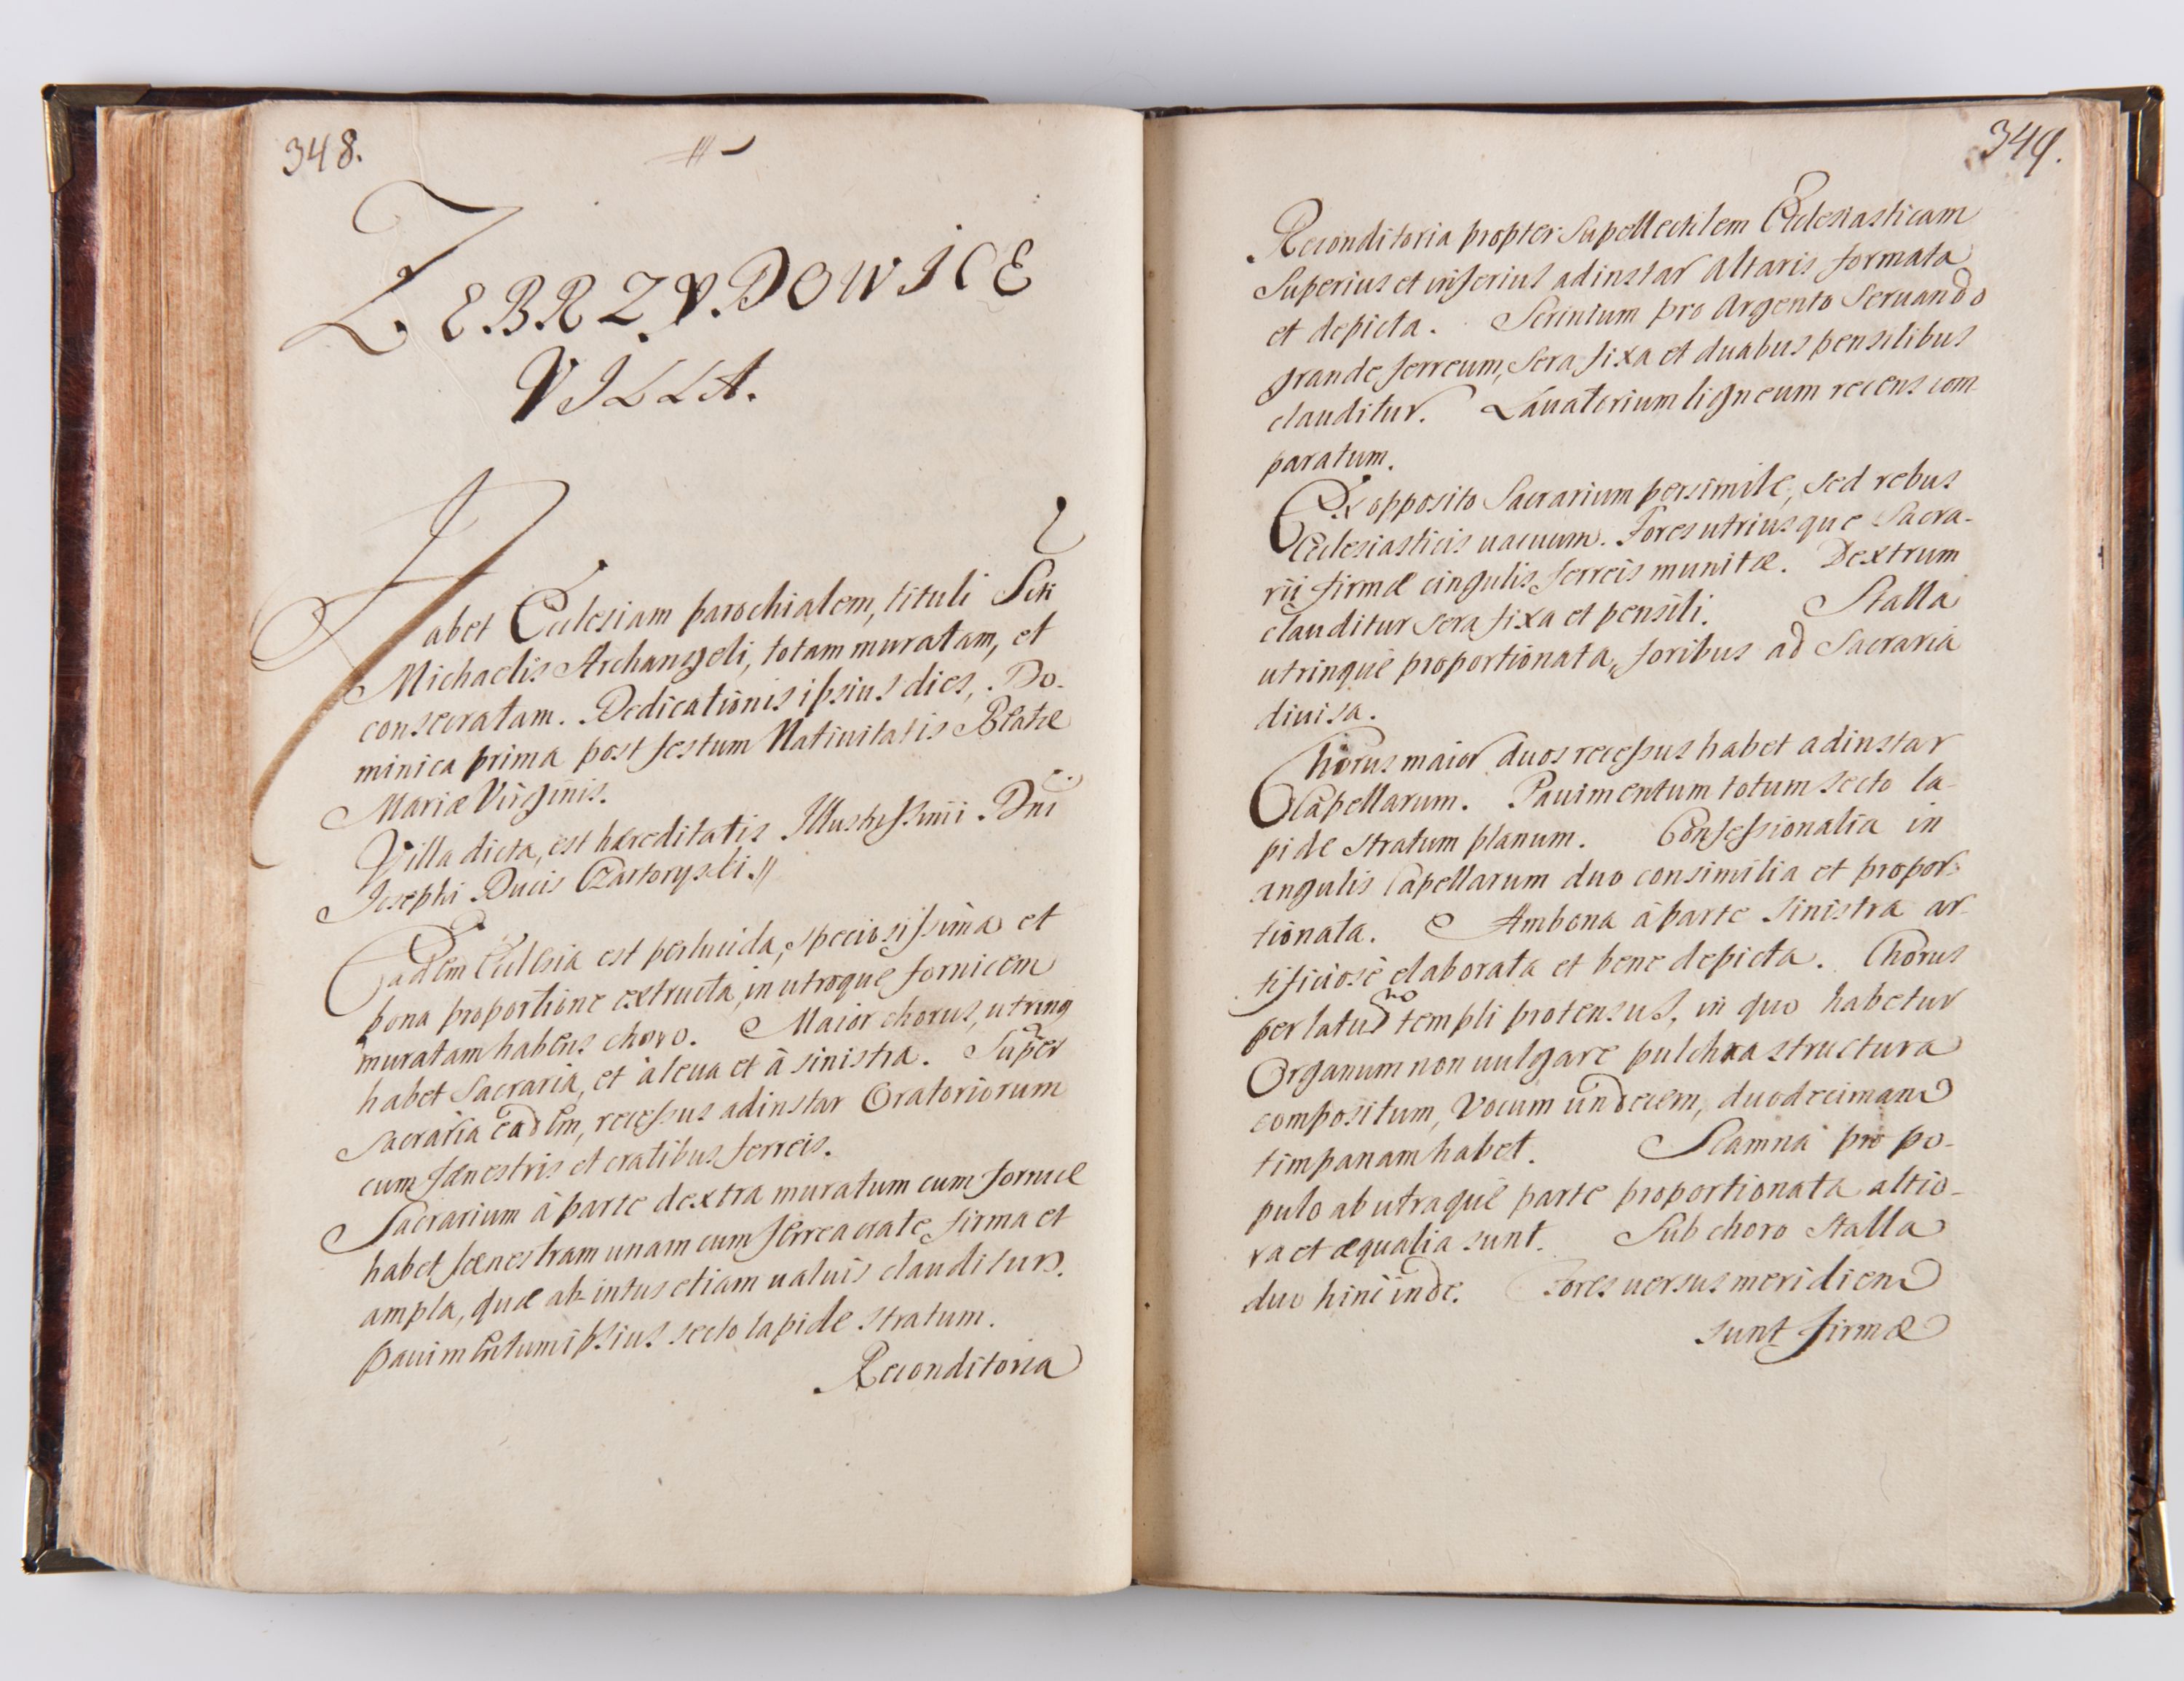 348.
ZEBRZYDOWICE
VILLA.
Habet Ecclesiam parochialem, tituli Scti
Michaelis Archangeli, totam muratam, et
consecratam. Dedicationis ipsius dies, Do-
minica prima post festum Natiuitatis Beatæ
Mariæ Virginis.
Villa dicta, est hæreditatis Illustrissimi Dni
Josephi Ducis Czartoryski.
Eadem Ecclesia est perlucida, speciosissima et
bona proportione extructa, in utroque fornicem
muratam habens choro. Maior chorus, utrinq
habet Sacraria, et à leua et à sinistra. Super
sacraria eadem, recessus adinstar Oratoriorum
cum fænestris et cratibus ferreis.
Sacrarium à parte dextra muratum cum fornice
habet fænestram unam cum ferrea crate, firma et
ampla, quæ ab intus etiam ualuis clauditur.
Pauimentum ipsius secto lapide stratum.
Reconditoria
349.
Reconditoria propter supellectilem Ecclesiasticam
superius et inferius adinstar altaris formata
et depicta. Scrinium pro Argento seruando
grande ferreum, sera fixa et duabus pensilibus
clauditur. Lauatorium ligneum recens com-
paratum.
Ex opposito Sacrarium persimile, sed rebus
Ecclesiasticis uacuum. Fores utriusque Sacra-
rii firmæ cingulis ferreis munitæ. Dextrum
clauditur sera fixa et pensili. Stalla
utrinque proportionata, foribus ad Sacraria
diuisa.
Chorus maior duos recessus habet adinstar
Capellarum. Pauimentum totum secto la-
pide stratum planum. Confessionalia in
angulis Capellarum duo consimilia et propor-
tionata. Ambona à parte sinistra ar-
tificiosè elaborata et bene depicta. Chorus
per latus templi protensus, in quo habetur
Organum non uulgare pulchra structura
compositum, Vocum undecem, duodecimam
timpanam habet. Scamna pro po-
pulo ab utraque parte proportionata altio-
ra et æqualia sunt. Sub choro Stalla
duo hinc inde. Fores uersus meridiem
sunt firmæ